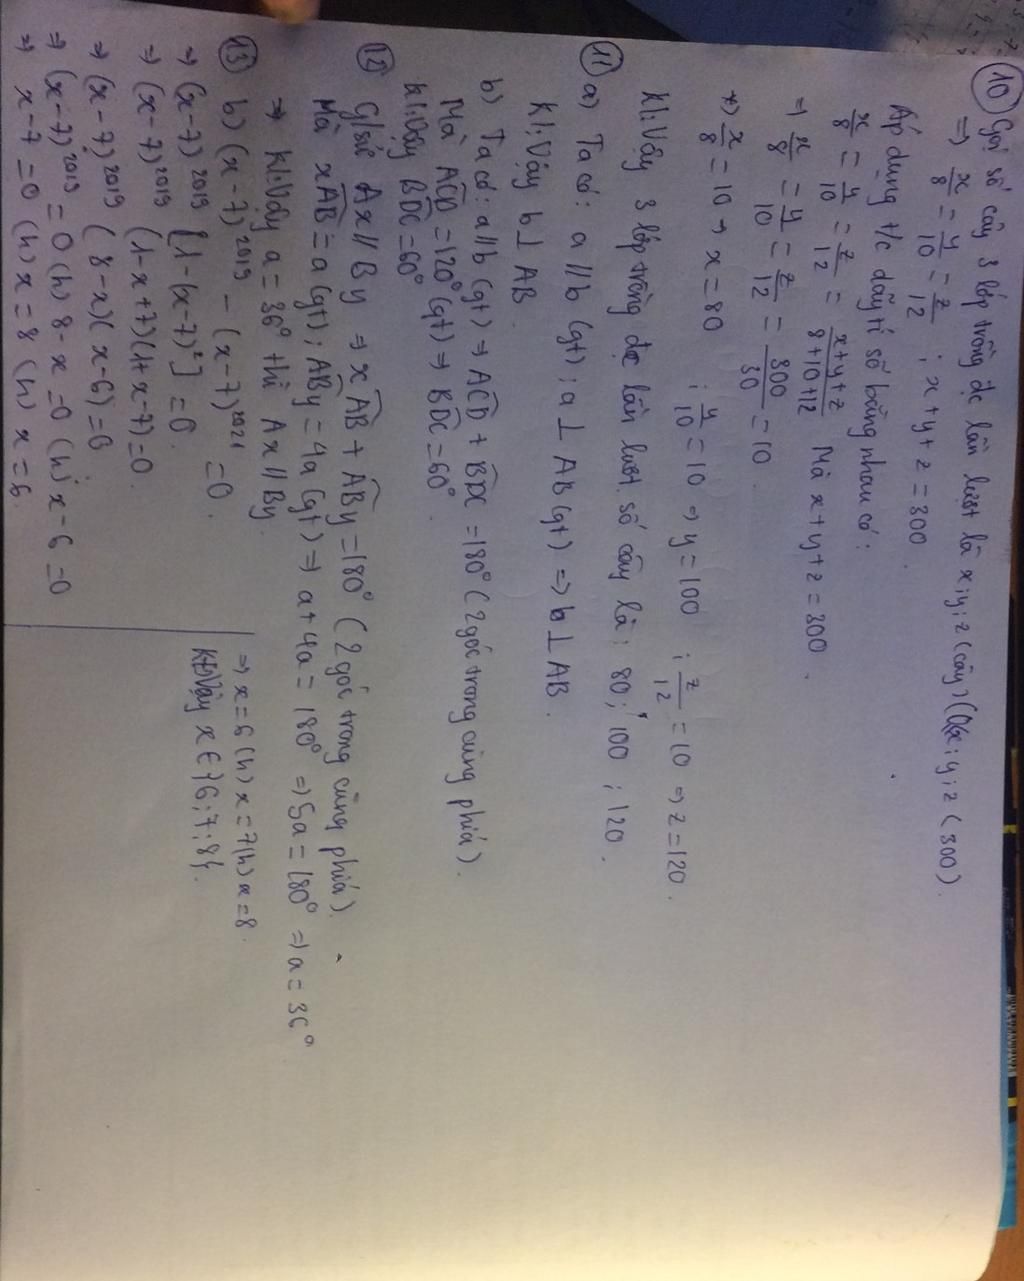 10 Gọi số cây 3 lớp trồng đc lần lượt là x; y; z (cây) (0<x; y; z < 300)
⇒ x/8 = y/10 = z/12 ; x + y + z = 300.
Áp dụng t/c dãy tỉ số bằng nhau có:
x/8 = y/10 = z/12 = x+y+z/8+10+12 Mà x + y + z = 300.
⇒ x/8 = y/10 = z/12 = 300/30 = 10
*) x/8 = 10 ⇒ x = 80 ; y/10 = 10 ⇒ y = 100 ; z/12 = 10 ⇒ z = 120.
Kl: Vậy 3 lớp trồng đc lần lượt số cây là: 80; 100 ; 120.
11 a) Ta có: a // b (gt) ; a ⊥ AB (gt) ⇒ b ⊥ AB.
Kl: Vậy b ⊥ AB.
b) Ta có: a // b (gt) ⇒ ACD + BDC = 180° (2 góc trong cùng phía).
Mà ACD = 120° (gt) ⇒ BDC = 60°.
Kl: Vậy BDC = 60°
12 G/sử Ax // By ⇒ xAB + ABy = 180° (2 góc trong cùng phía).
Mà xAB = a (gt) ; ABy = 4a (gt) ⇒ a + 4a = 180° ⇒ 5a = 180° ⇒ a = 36°
⇒ Kl: Vậy a = 36° thì Ax // By
13 b) (x-7)^2019 - (x-7)^2021 = 0.
⇒ (x-7)^2019 [1-(x-7)^2] = 0.
⇒ (x-7)^2019 (1-x+7)(1+x-7) = 0.
⇒ (x-7)^2019 (8-x)(x-6) = 0
⇒ (x-7)^2019 = 0 (h) 8-x = 0 (h) x-6 = 0
⇒ x-7 = 0 (h) x = 8 (h) x = 6.
⇒ x = 6 (h) x = 7 (h) x = 8.
Vậy x ∈ {6; 7; 8}.